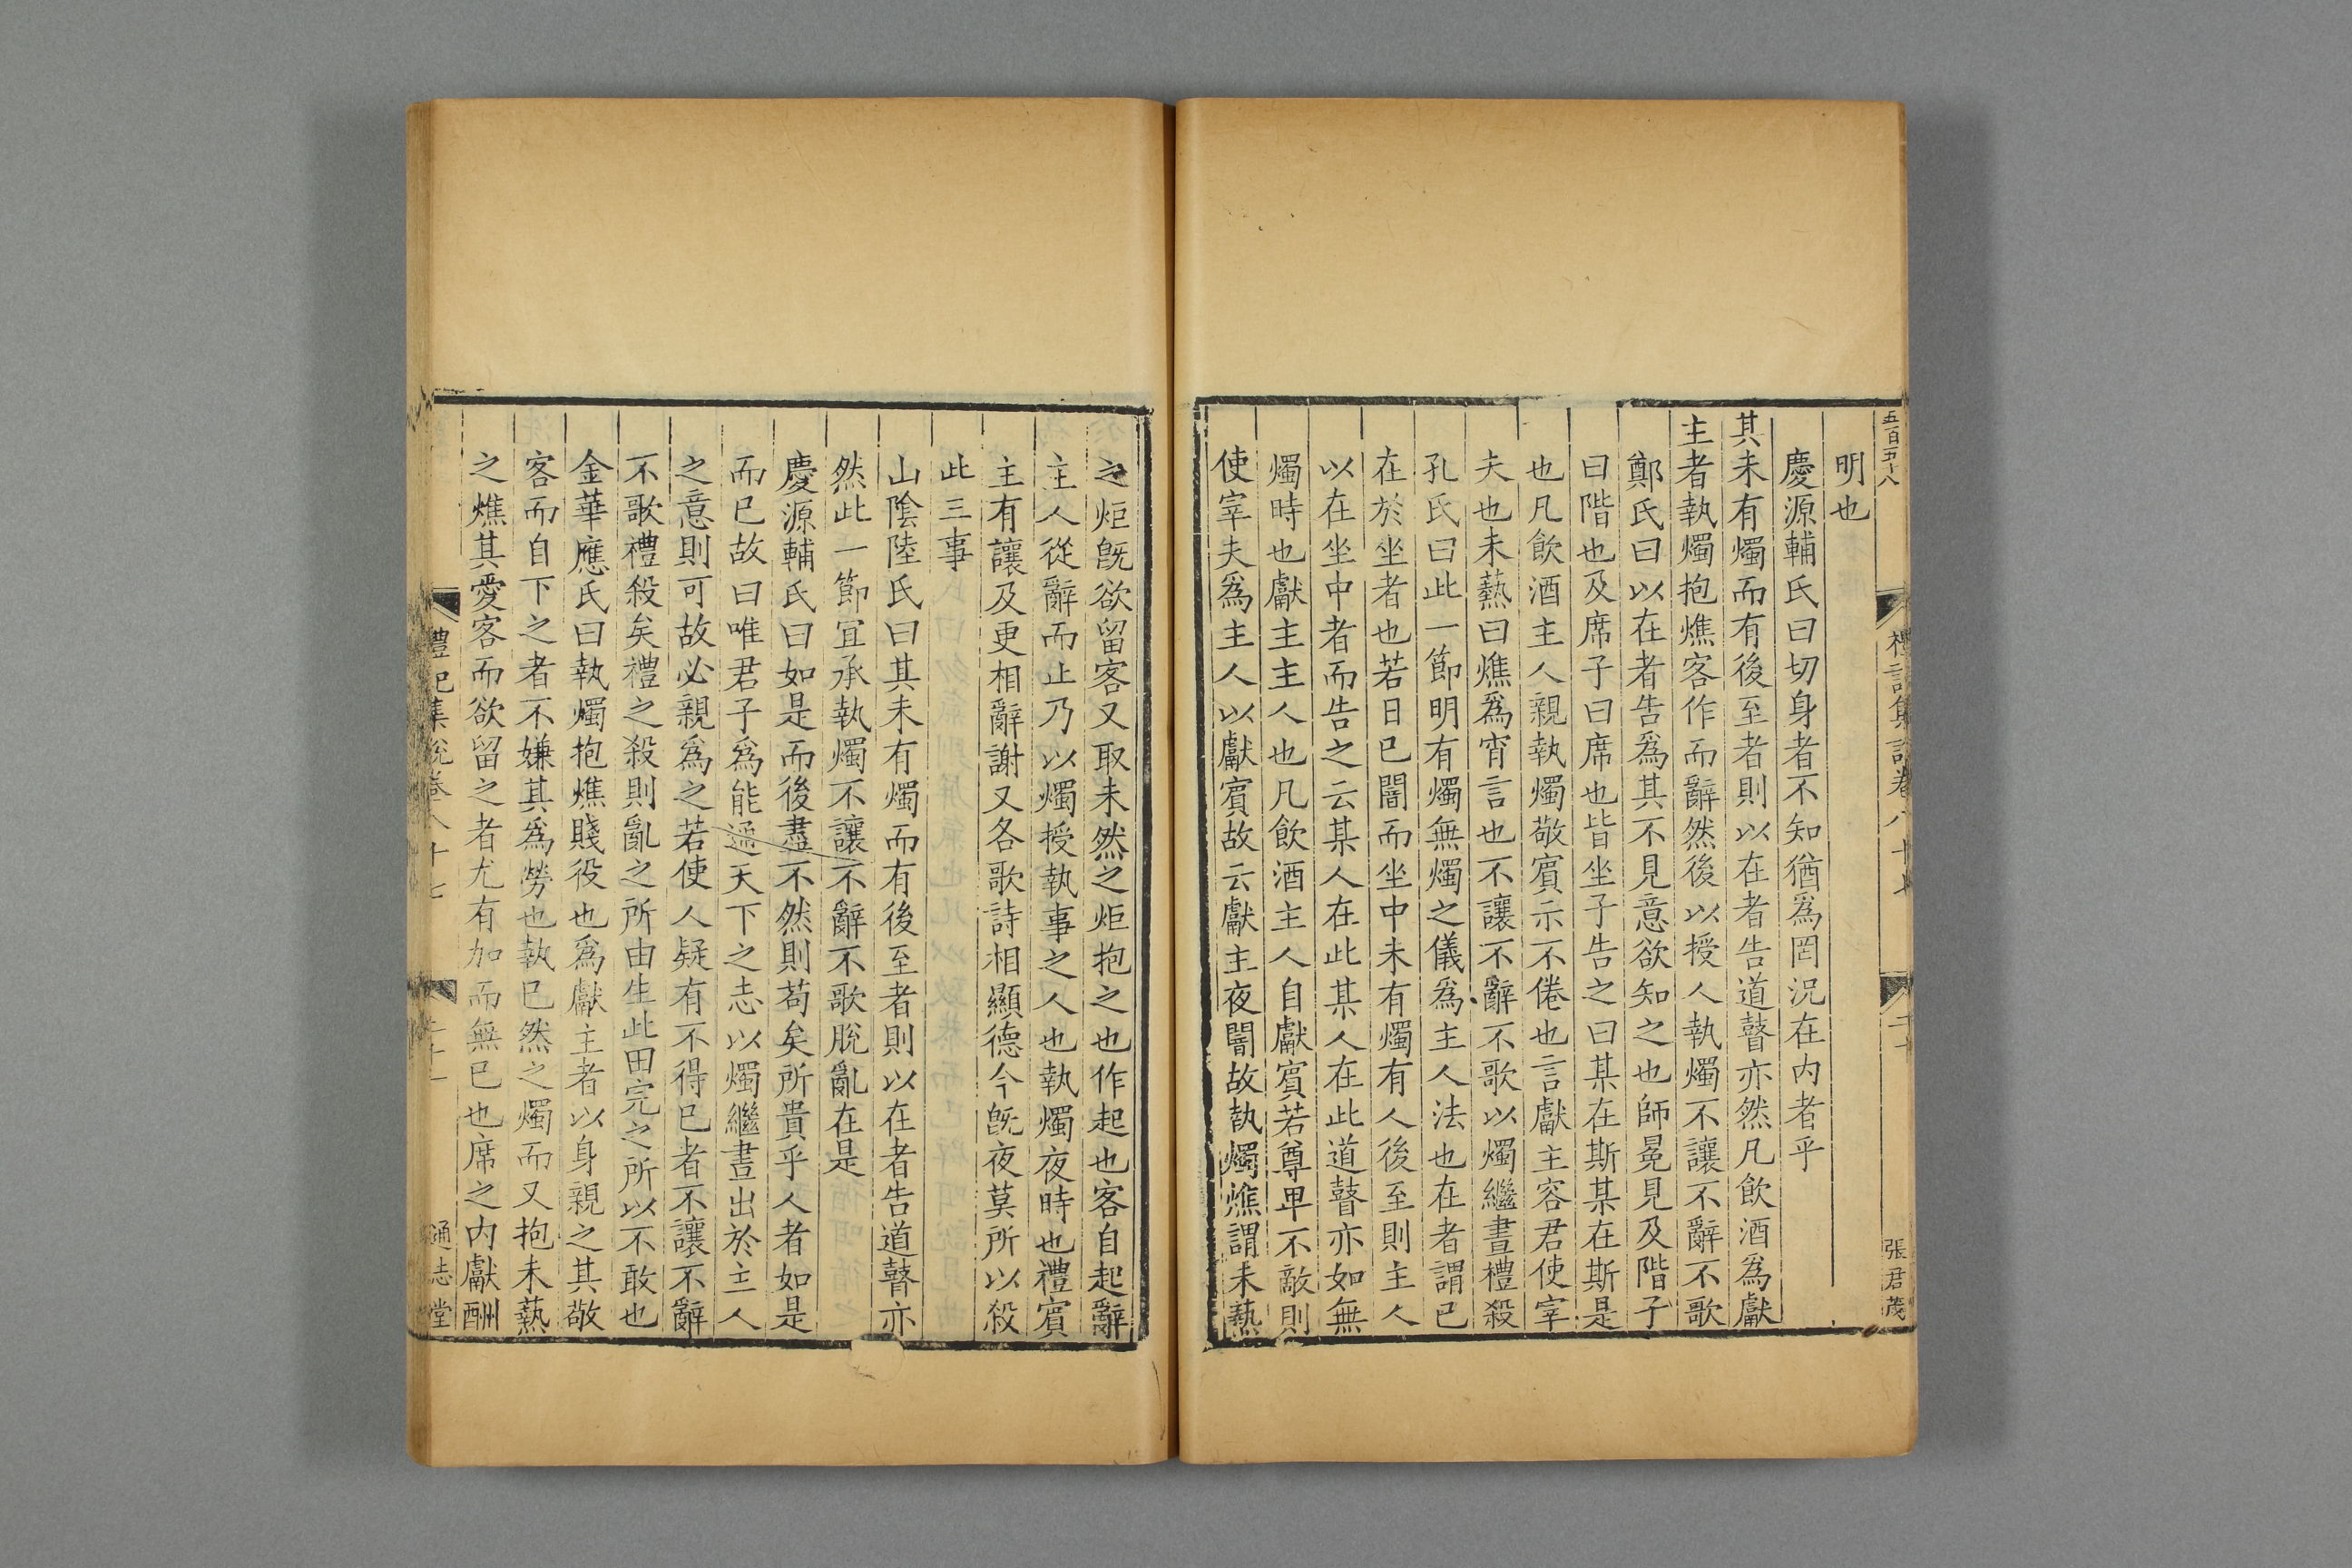 五百五十八
禮記集說卷八十七
二十
張君茂
明也
慶源輔氏曰切身者不知猶爲罔況在内者乎
其未有燭而有後至者則以在者告道瞽亦然凡飲酒爲獻
主者執燭抱燋客作而辭然後以授人執燭不讓不辭不歌
鄭氏曰以在者告爲其不見意欲知之也師冕見及階子
曰階也及席子曰席也皆坐子告之曰某在斯某在斯是
也凡飲酒主人親執燭敬賓示不倦也言獻主容君使宰
夫也未爇曰燋爲宵言也不讓不辭不歌以燭繼晝禮殺
孔氏曰此一節明有燭無燭之儀爲主人法也在者謂已
在於坐者也若日已闇而坐中未有燭有人後至則主人
以在坐中者而告之云某人在此某人在此道瞽亦如無
燭時也獻主主人也凡飲酒主人自獻賓若尊卑不敵則
使宰夫爲主人以獻賓故云獻主夜闇故執燭燋謂未爇
之炬旣欲留客又取未然之炬抱之也作起也客自起辭
主人從辭而止乃以燭授執事之人也執燭夜時也禮賓
主有讓及更相辭謝又各歌詩相顯德今旣夜莫所以殺
此三事
山陰陸氏曰其未有燭而有後至者則以在者告道瞽亦
然此一節宜承執燭不讓不辭不歌脫亂在是
慶源輔氏曰如是而後盡不然則苟矣所貴乎人者如是
而已故曰唯君子爲能通天下之志以燭繼晝出於主人
之意則可故必親爲之若使人疑有不得已者不讓不辭
不歌禮殺矣禮之殺則亂之所由生此田完之所以不敢也
金華應氏曰執燭抱燋賤役也爲獻主者以身親之其敬
客而自下之者不嫌其爲勞也執已然之燭而又抱未爇
之燋其愛客而欲留之者尤有加而無已也席之内獻酬
禮記集說卷八十七
通志堂